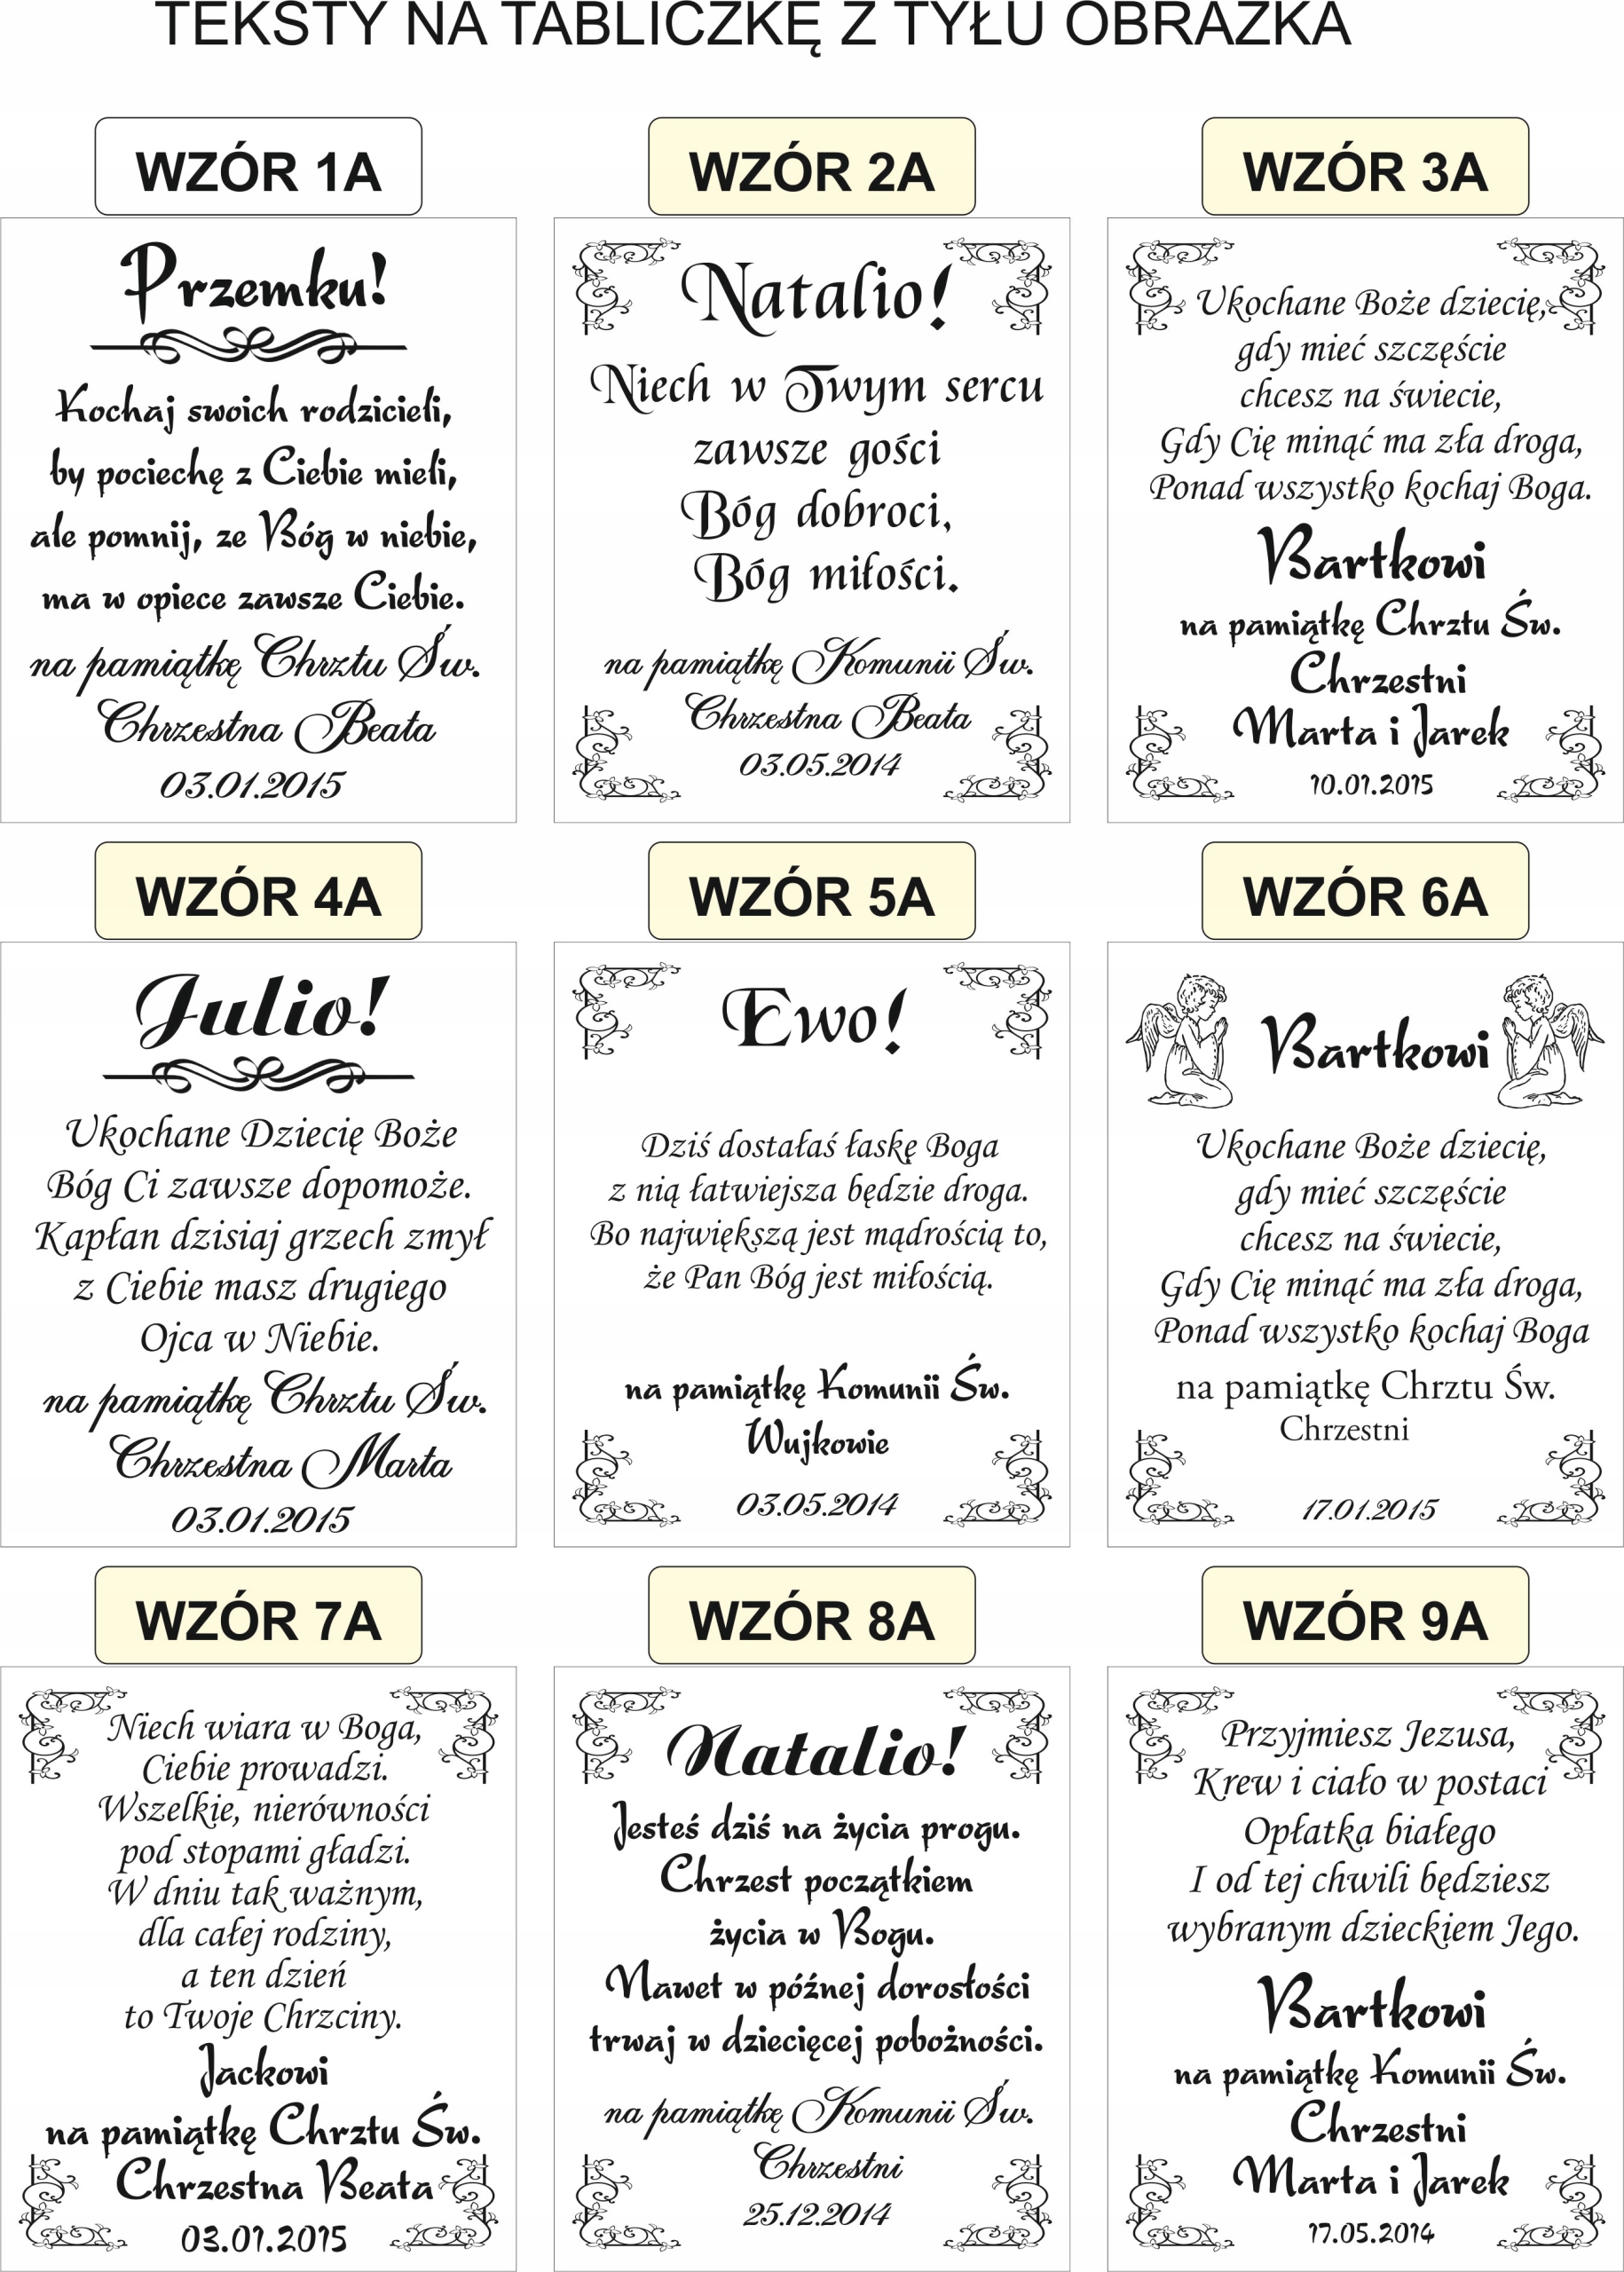 TEKSTY NA TABLICZKĘ Z TYŁU OBRAZKA
WZÓR 1A
Przemku!
Kochaj swoich rodzicieli,
by pociechę z Ciebie mieli,
ale pomnij, ze Bóg w niebie,
ma w opiece zawsze Ciebie.
na pamiątkę Chrztu Św.
Chrzestna Beata
03.01.2015
WZÓR 2A
Natalio!
Niech w Twym sercu
zawsze gości
Bóg dobroci,
Bóg miłości.
na pamiątkę Komunii Św.
Chrzestna Beata
03.05.2014
WZÓR 3A
Ukochane Boże dziecię,
gdy mieć szczęście
chcesz na świecie,
Gdy Cię minąć ma zła droga,
Ponad wszystko kochaj Boga.
Bartkowi
na pamiątkę Chrztu Św.
Chrzestni
Marta i Jarek
10.01.2015
WZÓR 4A
Julio!
Ukochane Dziecię Boże
Bóg Ci zawsze dopomoże.
Kapłan dzisiaj grzech zmył
z Ciebie masz drugiego
Ojca w Niebie.
na pamiątkę Chrztu Św.
Chrzestna Marta
03.01.2015
WZÓR 5A
Ewo!
Dziś dostałaś łaskę Boga
z nią łatwiejsza będzie droga.
Bo największą jest mądrością to,
że Pan Bóg jest miłością.
na pamiątkę Komunii Św.
Wujkowie
03.05.2014
WZÓR 6A
Bartkowi
Ukochane Boże dziecię,
gdy mieć szczęście
chcesz na świecie,
Gdy Cię minąć ma zła droga,
Ponad wszystko kochaj Boga
na pamiątkę Chrztu Św.
Chrzestni
17.01.2015
WZÓR 7A
Niech wiara w Boga,
Ciebie prowadzi.
Wszelkie, nierówności
pod stopami gładzi.
W dniu tak ważnym,
dla całej rodziny,
a ten dzień
to Twoje Chrzciny.
Jackowi
na pamiątkę Chrztu Św.
Chrzestna Beata
03.01.2015
WZÓR 8A
Natalio!
Jesteś dziś na życia progu.
Chrzest początkiem
życia w Bogu.
Nawet w późnej dorosłości
trwaj w dziecięcej pobożności.
na pamiątkę Komunii Św.
Chrzestni
25.12.2014
WZÓR 9A
Przyjmiesz Jezusa,
Krew i ciało w postaci
Opłatka białego
I od tej chwili będziesz
wybranym dzieckiem Jego.
Bartkowi
na pamiątkę Komunii Św.
Chrzestni
Marta i Jarek
17.05.2014